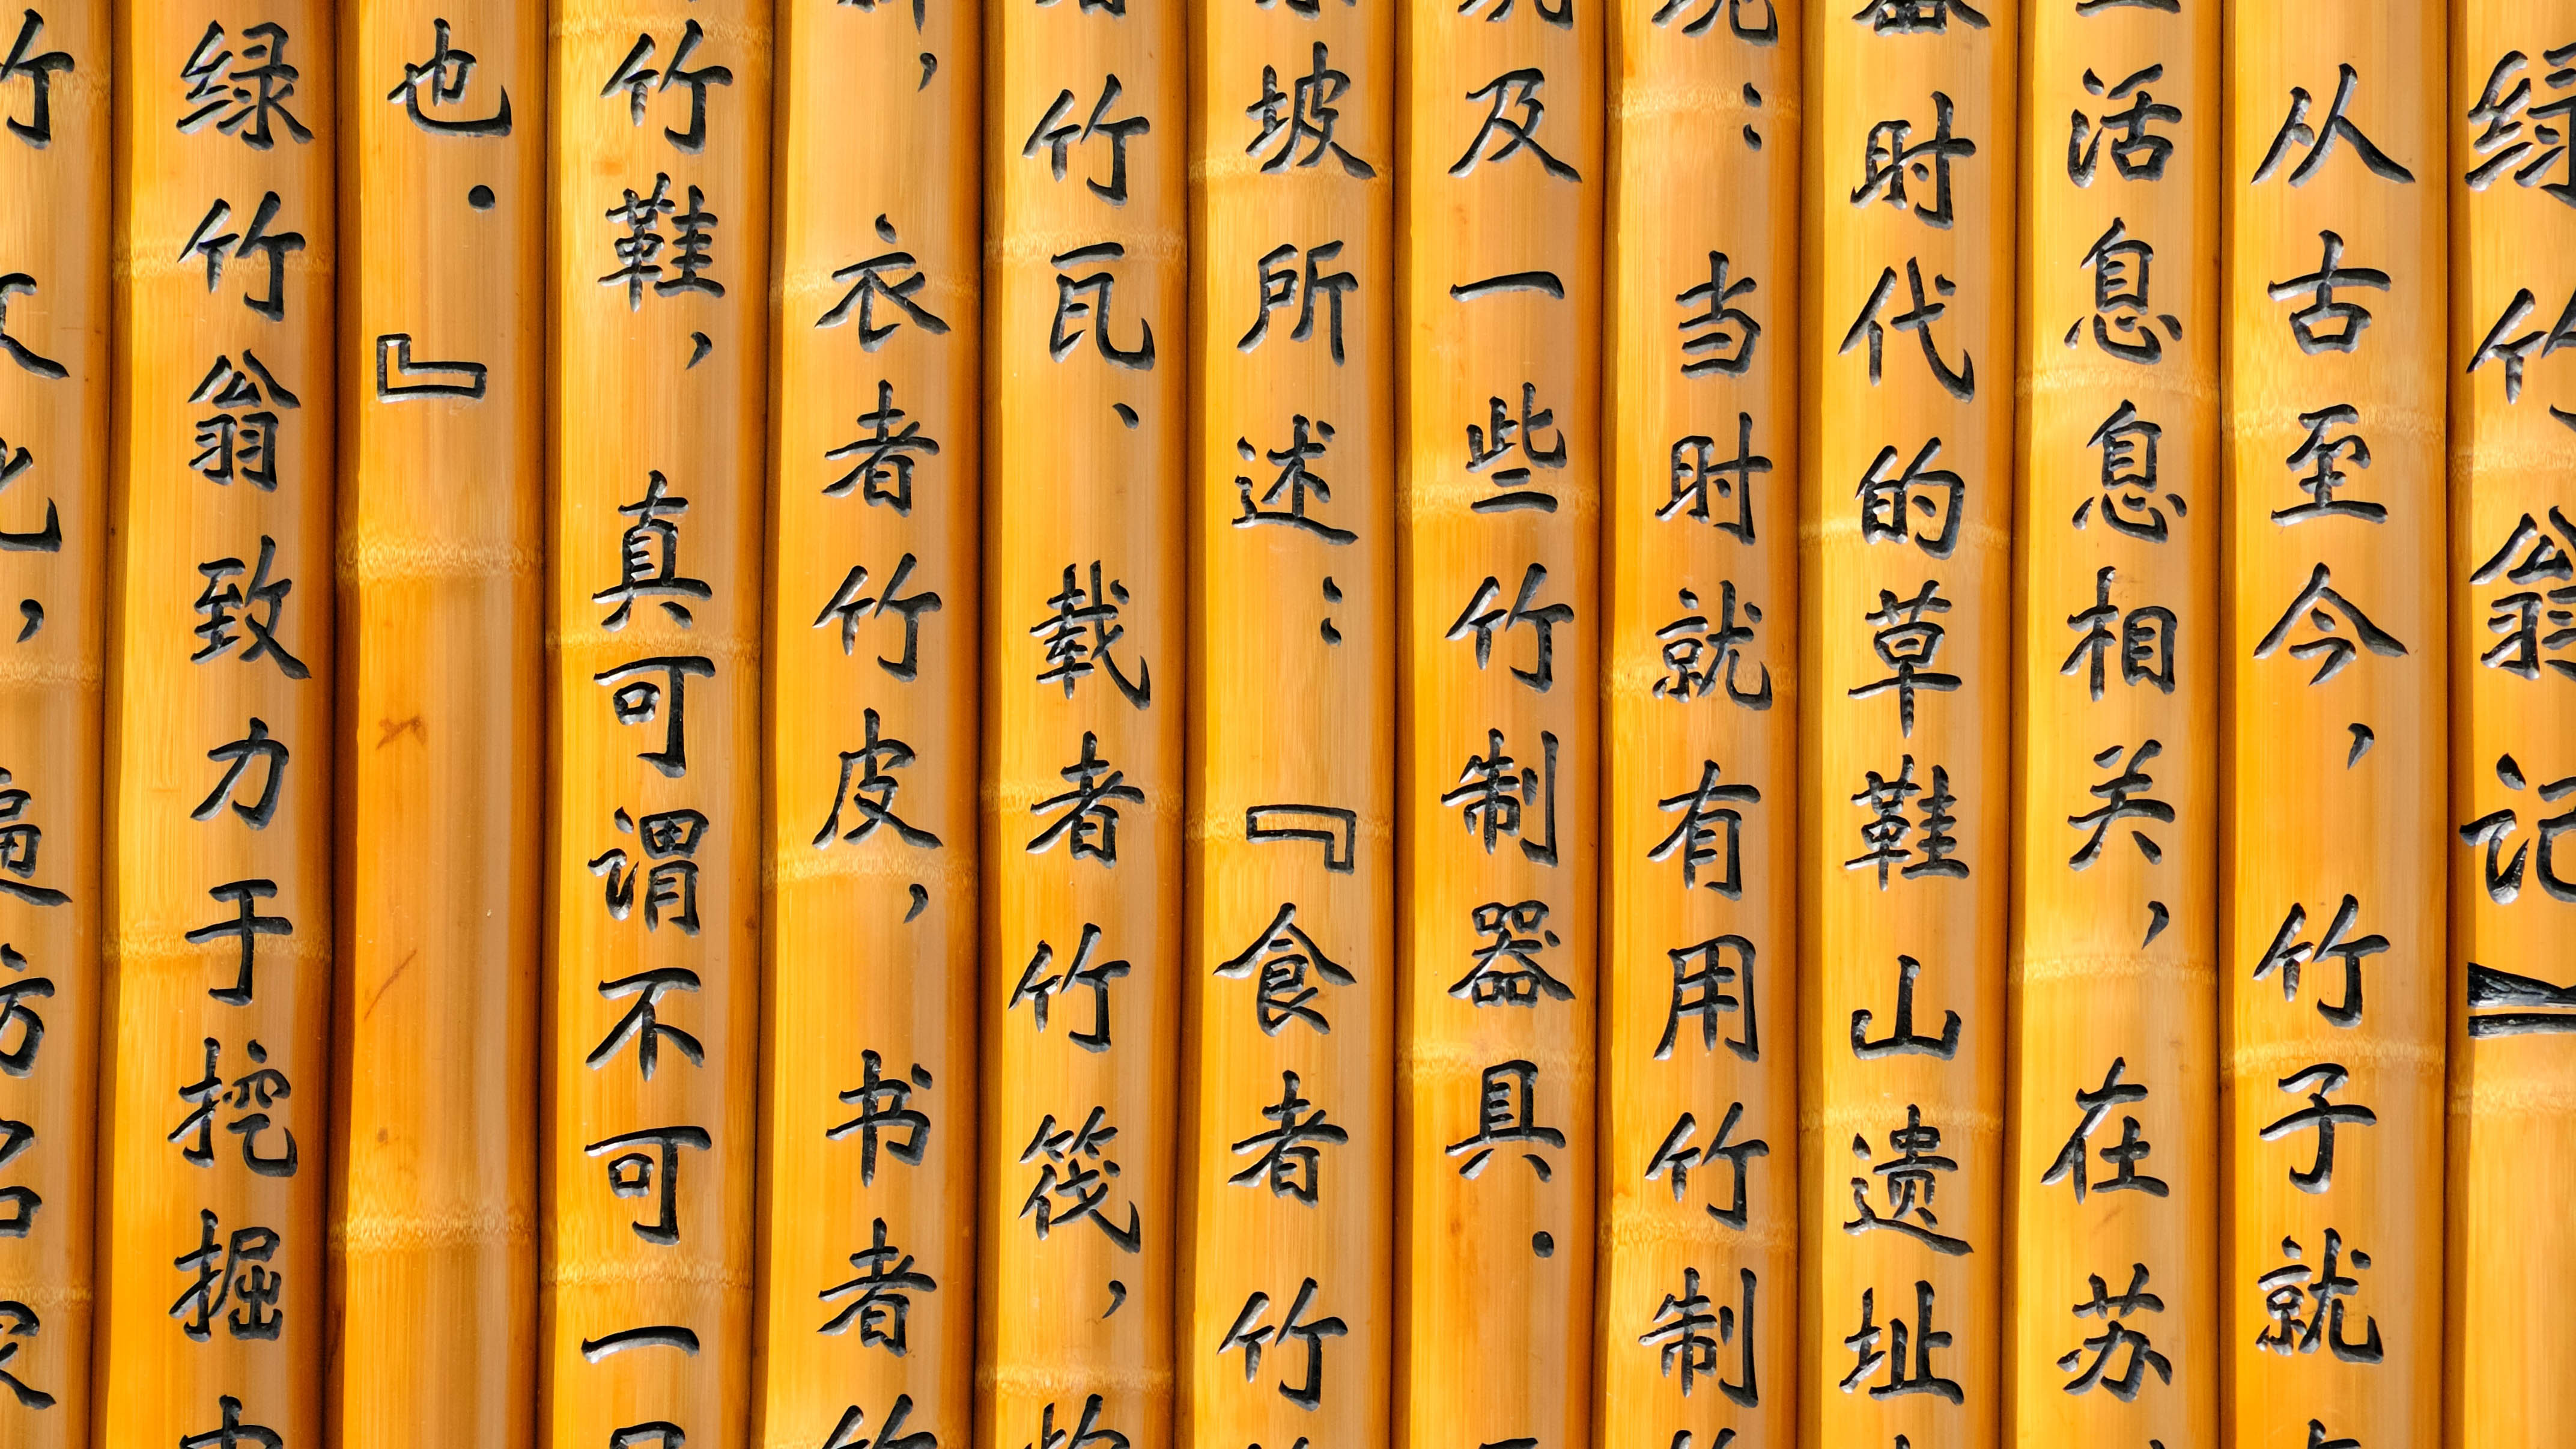 绿竹翁记】
从古至今，竹子就
活息息相关，在苏
器时代的草鞋山遗址
：当时就有用竹制
及一些竹制器具．
坡所述：『食者竹
竹瓦、载者竹筏，
，衣者竹皮，书者竹
竹鞋，真可谓不可一日
也．』
绿竹翁致力于挖掘中
竹文化，遍访名家